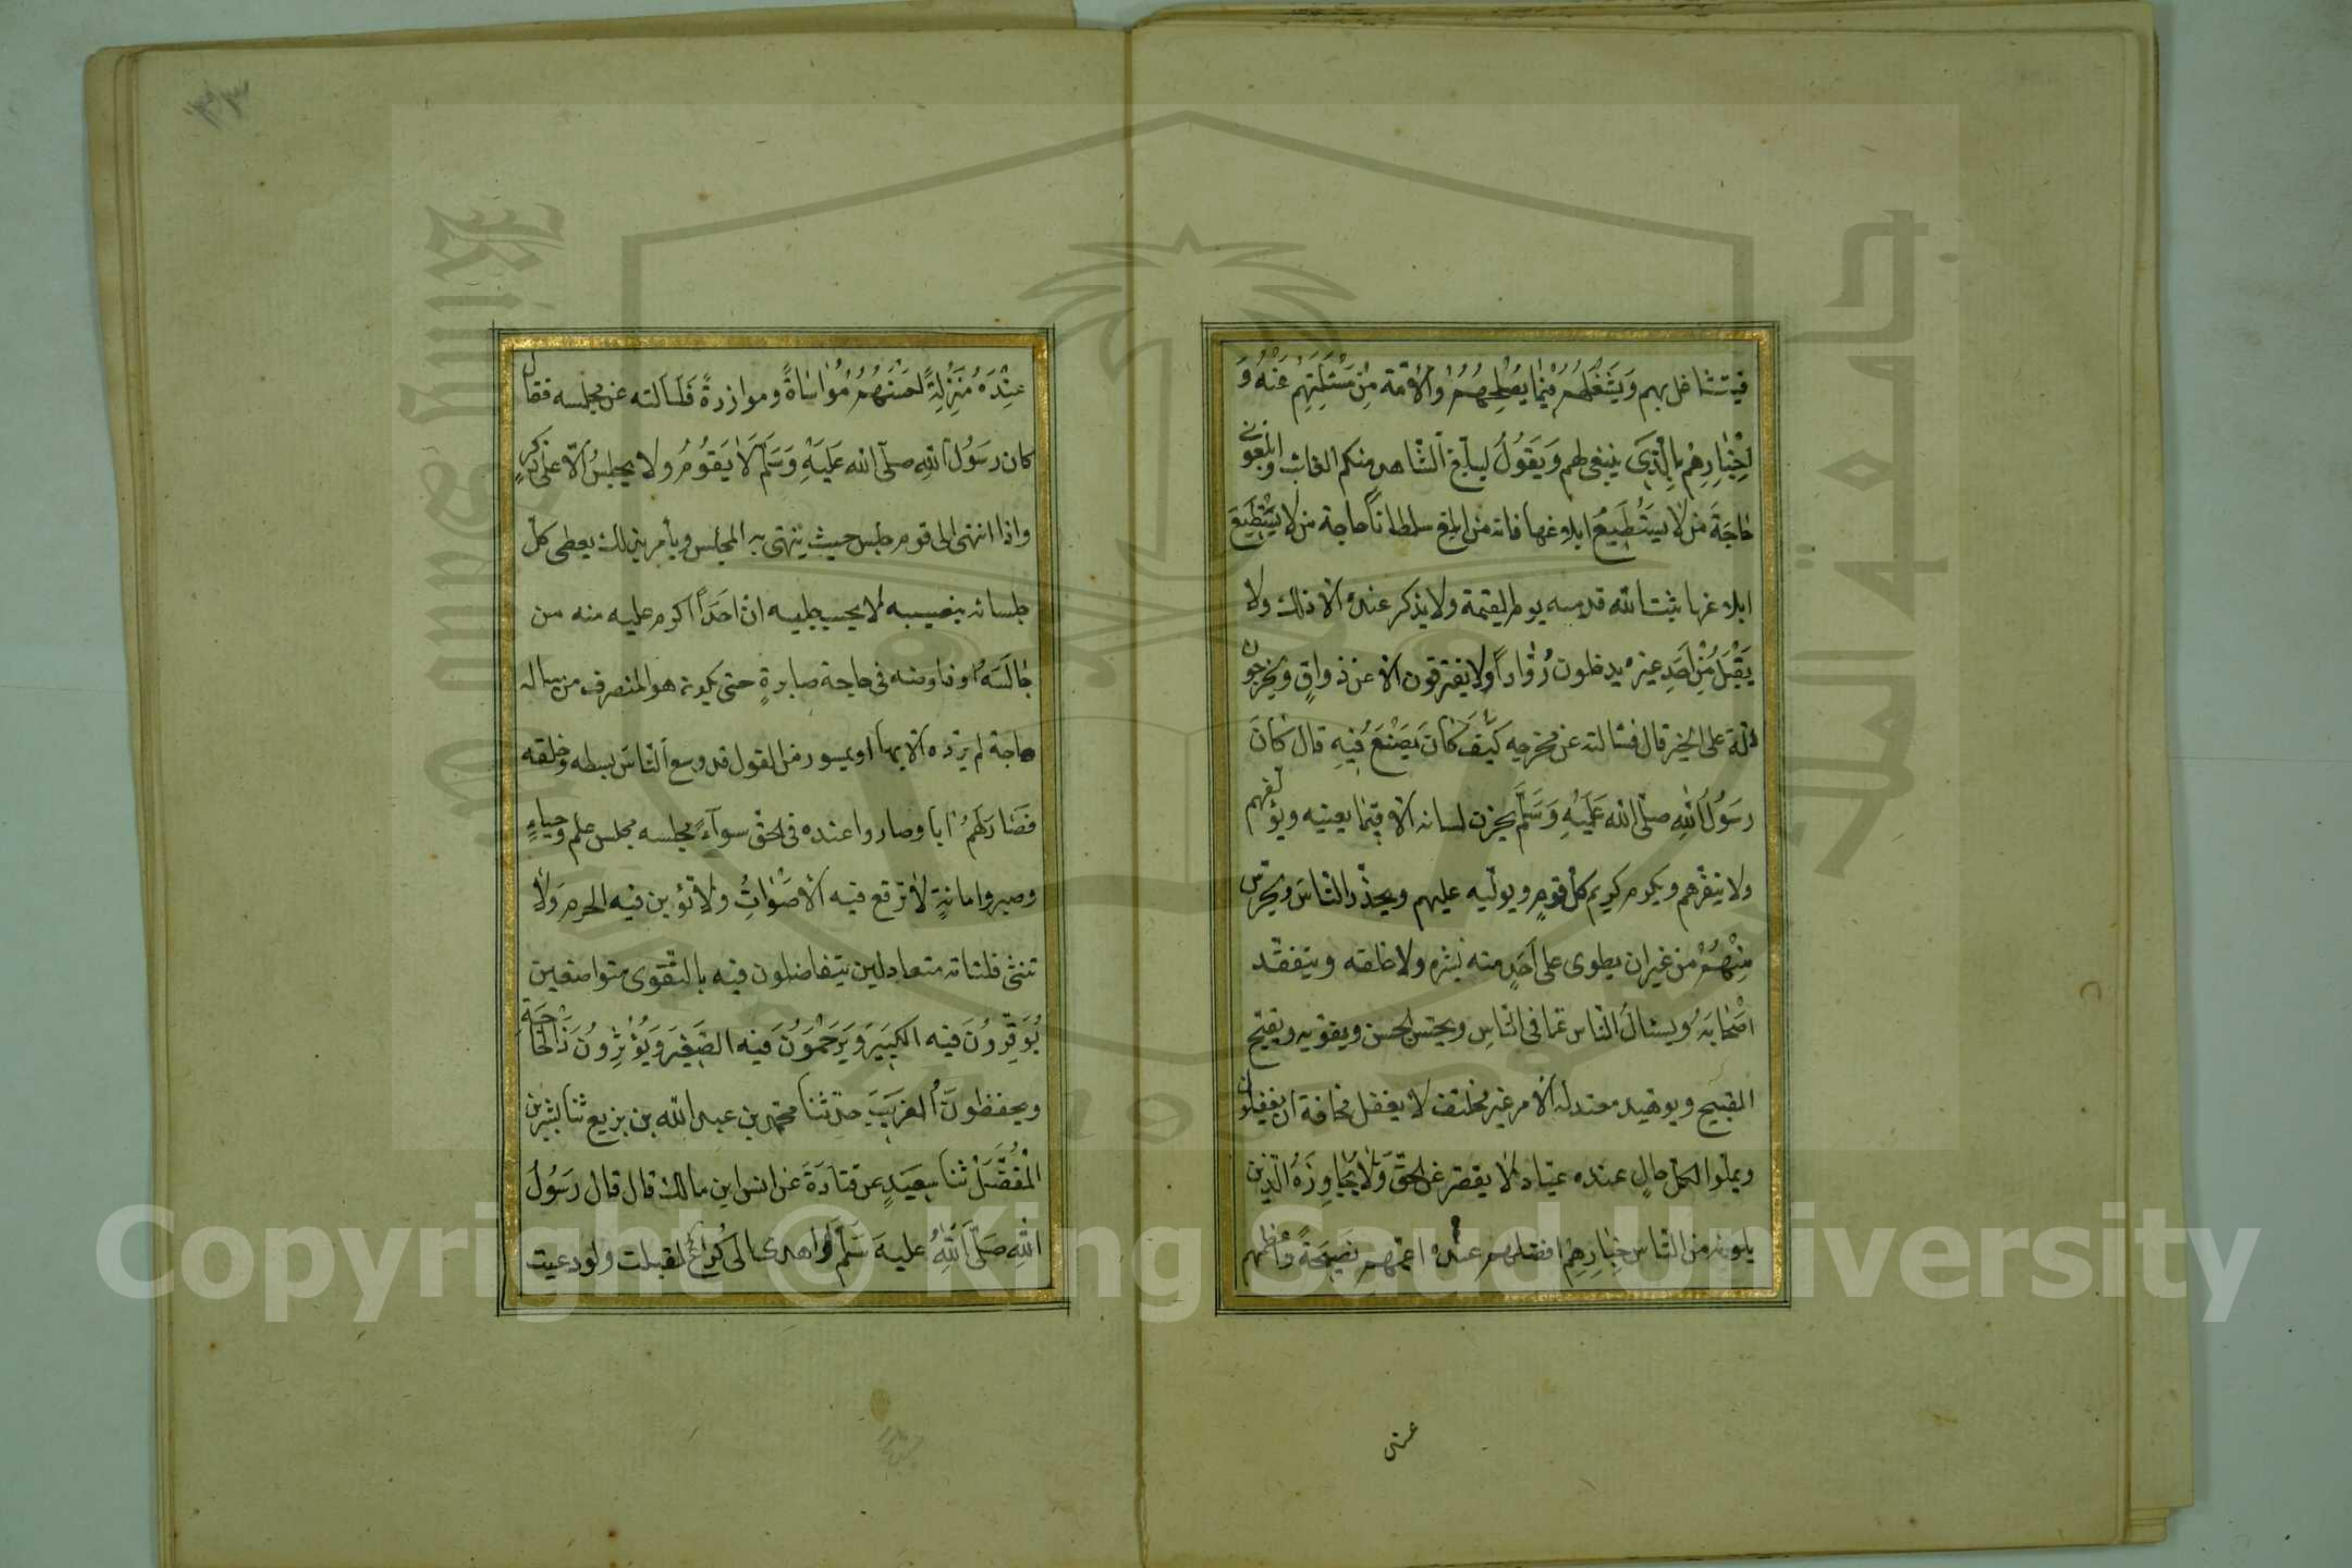 فيتشاغل بهم وَيَشْغَلُهُمْ فيما يُصْلِحُهُمْ والأمّة مِنْ مَسْئَلَتِهِمْ عَنْهُ وَ
اِخْبَارِهِمْ بِالَّذِي ينبغي لهم وَيَقُولُ ليبلّغ الشاهد منكم الغائب وابلغوني
حَاجَةَ من لا يَسْتَطِيعُ ابلاغها فانه من ابلغ سلطاناً حاجة من لا يَسْتَطِيعُ
ابلاغها ثبت الله قدميه يوم القيمة ولا يذكر عنده الا ذلك ولا
يَقْبَلُ مِنْ اَحَدٍ غيره يدخلون رُوَّاداً ولا يفترقون الا عن ذواقٍ ويخرجون
ادلة على الخير قال فسالته عن مخرجه كَيْفَ كَانَ يَصْنَعُ فِيهِ قال كَانَ
رَسُولُ اللهِ صلى الله عَلَيْهِ وَسَلَّمَ يخزن لسانه الا فيما يعنيه ويؤلفهم
ولا ينفرهم ويكرم كريم كل قومٍ ويوليه عليهم ويحذر الناسَ ويحترس
مِنْهُمْ من غير ان يطوى على اَحَدٍ منه بشره ولا خلقه ويتفقد
اَصْحَابَهُ ويسئالُ الناس عما في الناسِ ويحسن الحسن ويقويه ويقبح
القبيح ويوهيه معتدل الامر غير مختلف لا يغفل مخافة ان يغفلوا
ويملّوا لكل حالٍ عنده عتاد لا يقصر عن الحق وَلَا يُجَاوِزُهُ الذين
يلونه من الناس خِيَارُهِمْ افضلهم عنده اعمّهم نَصِيحَةً واعظمهم
عنده
عِنْدَهُ مَنْزِلَةً احسَنُهُمْ مُوَاسَاةً وموازرةً فَسَالته عن مجلسه فقال
كان رَسُولُ اللهِ صلى الله عَلَيْهِ وَسَلَّمَ لَا يَقُومُ ولا يجلسُ الّا على ذكرٍ
واذا انتهى الى قوم جلس حيث ينتهى به المجلس ويأمر بذلك يعطى كل
جلسائه بنصيبه لا يحسب جليسه ان اَحَداً اكرم عليه منه من
جَالَسَهُ او فاوضه في حاجة صابرهٍ حتى يكون هو المنصرف من ساله
حاجة لم يرده الا بها او بميسور من القول قد وسع الناسَ بسطه وخلقه
فَصَارَ لَهُمْ ابا وصاروا عنده في الحق سوآءً مجلسه مجلس علم وحياءٍ
وصبر وامانةٍ لا ترفع فيه الاَصْوَاتُ ولا تؤبن فيه الحرم وَلَا
تنثى فلتاته متعادلين يتفاضلون فيه بالتقوى متواضعين
يُوَقِّرُونَ فيه الكَبِيرَ وَيَرْحَمُونَ فيه الصَغِيرَ وَيُؤْثِرُونَ ذَالحَاجَةِ
ويحفظونَ الغريبَ حدثنا محمد بن عبد الله بن بزيع ثنا بشر بن
المُفَضَّلِ ثنا سَعِيدٍ عن قتادَةَ عن انس ابن مالك قال قال رَسُولُ
اللهِ صَلَّى اللهُ عليه سَلَّمَ لَو اهدى الَى كُرَاعٌ لقبلت ولو دعيت
Copyright © King Saud University